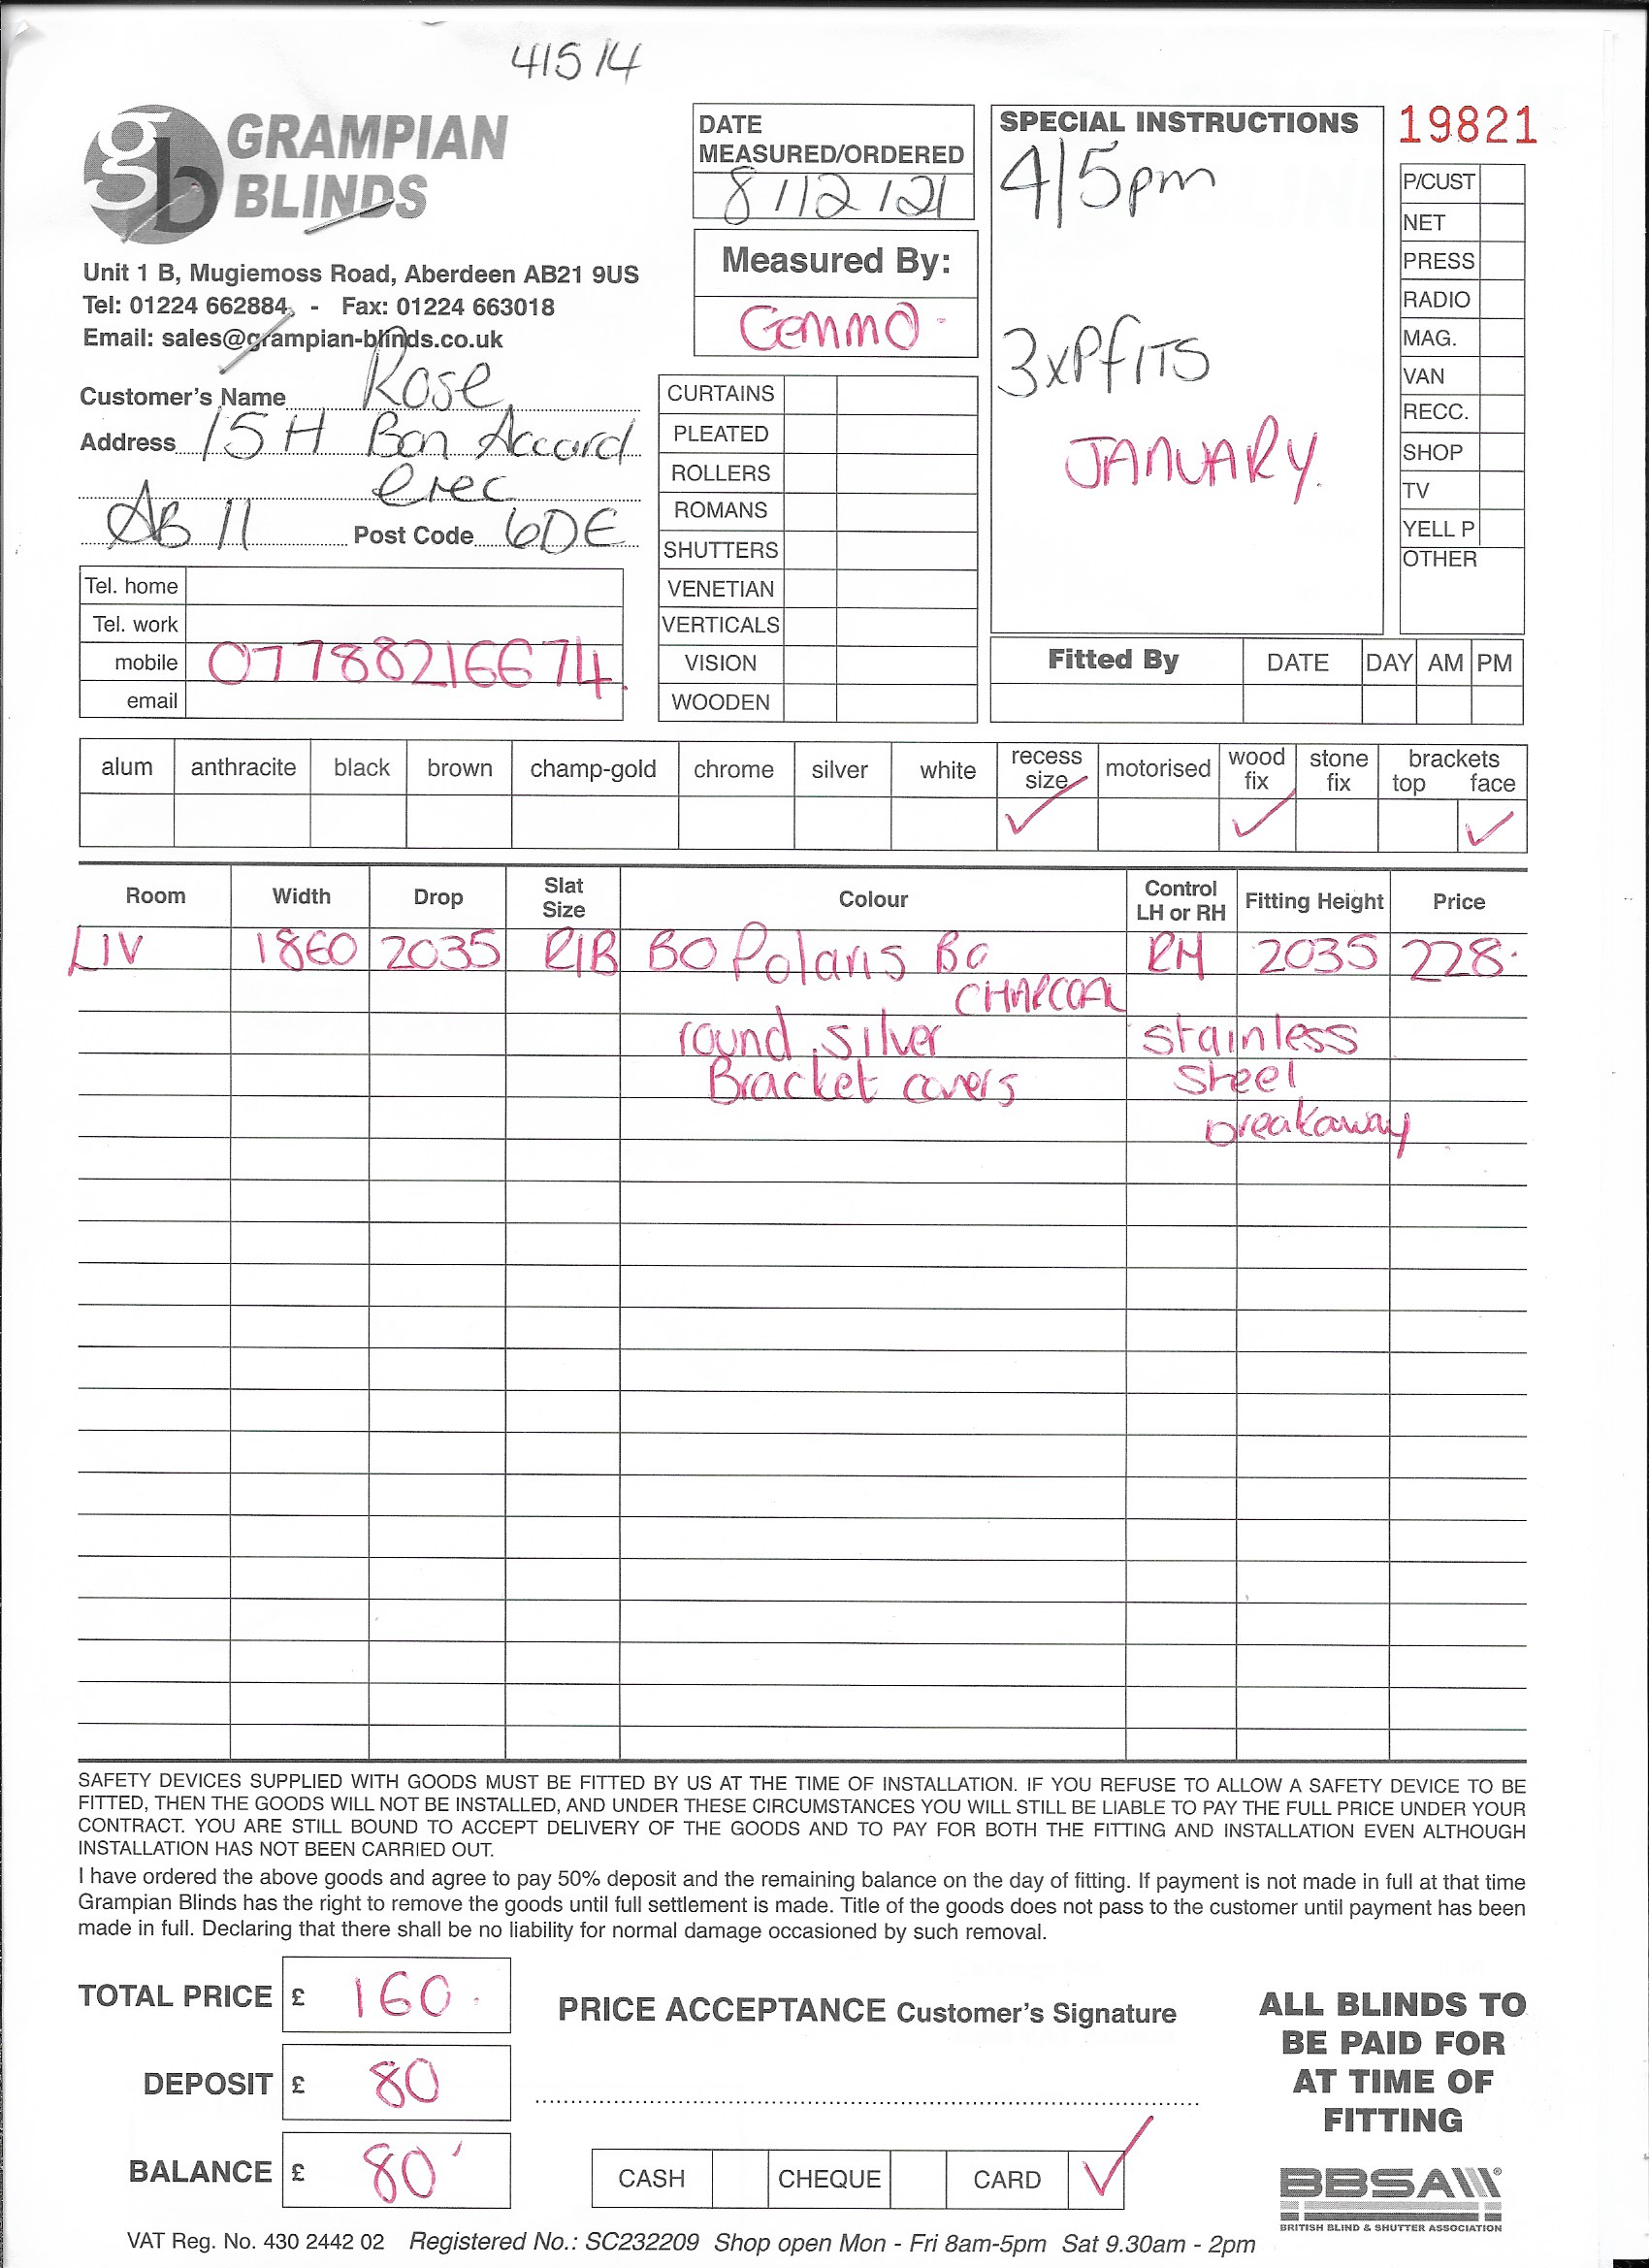 41514
GRAMPIAN
BLINDS
Unit 1 B, Mugiemoss Road, Aberdeen AB21 9US
Tel: 01224 662884, - Fax: 01224 663018
Email: sales@grampian-blinds.co.uk
Customer's Name Rose
Address 15H Bon Accord
Crec
AB 11 Post Code 6DE
Tel. home
Tel. work
mobile 077882166714
email
DATE
MEASURED/ORDERED
8/12/21
Measured By:
Gemma
CURTAINS
PLEATED
ROLLERS
ROMANS
SHUTTERS
VENETIAN
VERTICALS
VISION
WOODEN
SPECIAL INSTRUCTIONS
4/5pm
3xPfITS
JANUARY.
19821
P/CUST
NET
PRESS
RADIO
MAG.
VAN
RECC.
SHOP
TV
YELL P
OTHER
Fitted By DATE DAY AM PM
alum anthracite black brown champ-gold chrome silver white recess size motorised wood fix stone fix brackets top face
Room Width Drop Slat Size Colour Control LH or RH Fitting Height Price
LIV 1860 2035 RIB BO Polaris BO RH 2035 228.
CHARCOAL
round silver stainless
Bracket covers steel
breakaway
SAFETY DEVICES SUPPLIED WITH GOODS MUST BE FITTED BY US AT THE TIME OF INSTALLATION. IF YOU REFUSE TO ALLOW A SAFETY DEVICE TO BE
FITTED, THEN THE GOODS WILL NOT BE INSTALLED, AND UNDER THESE CIRCUMSTANCES YOU WILL STILL BE LIABLE TO PAY THE FULL PRICE UNDER YOUR
CONTRACT. YOU ARE STILL BOUND TO ACCEPT DELIVERY OF THE GOODS AND TO PAY FOR BOTH THE FITTING AND INSTALLATION EVEN ALTHOUGH
INSTALLATION HAS NOT BEEN CARRIED OUT.
I have ordered the above goods and agree to pay 50% deposit and the remaining balance on the day of fitting. If payment is not made in full at that time
Grampian Blinds has the right to remove the goods until full settlement is made. Title of the goods does not pass to the customer until payment has been
made in full. Declaring that there shall be no liability for normal damage occasioned by such removal.
TOTAL PRICE £ 160.
DEPOSIT £ 80
BALANCE £ 80
PRICE ACCEPTANCE Customer's Signature
CASH CHEQUE CARD
ALL BLINDS TO
BE PAID FOR
AT TIME OF
FITTING
BBSA
BRITISH BLIND & SHUTTER ASSOCIATION
VAT Reg. No. 430 2442 02 Registered No.: SC232209 Shop open Mon - Fri 8am-5pm Sat 9.30am - 2pm